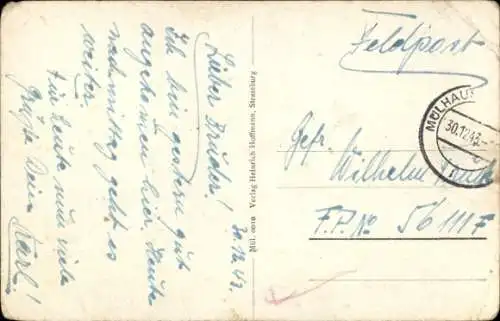 30.12.43.
Lieber Bruder!
Ich bin gestern gut
angekommen hier, heute
nachmittag geht es
weiter.
Für heute nun viele
Grüße Dein
Karl!
Mül. 00010 Verlag Heinrich Hoffmann, Strassburg
Feldpost
MÜLHAU
30.12.43
Gefr. Wilhelm
F.P.No 56111F